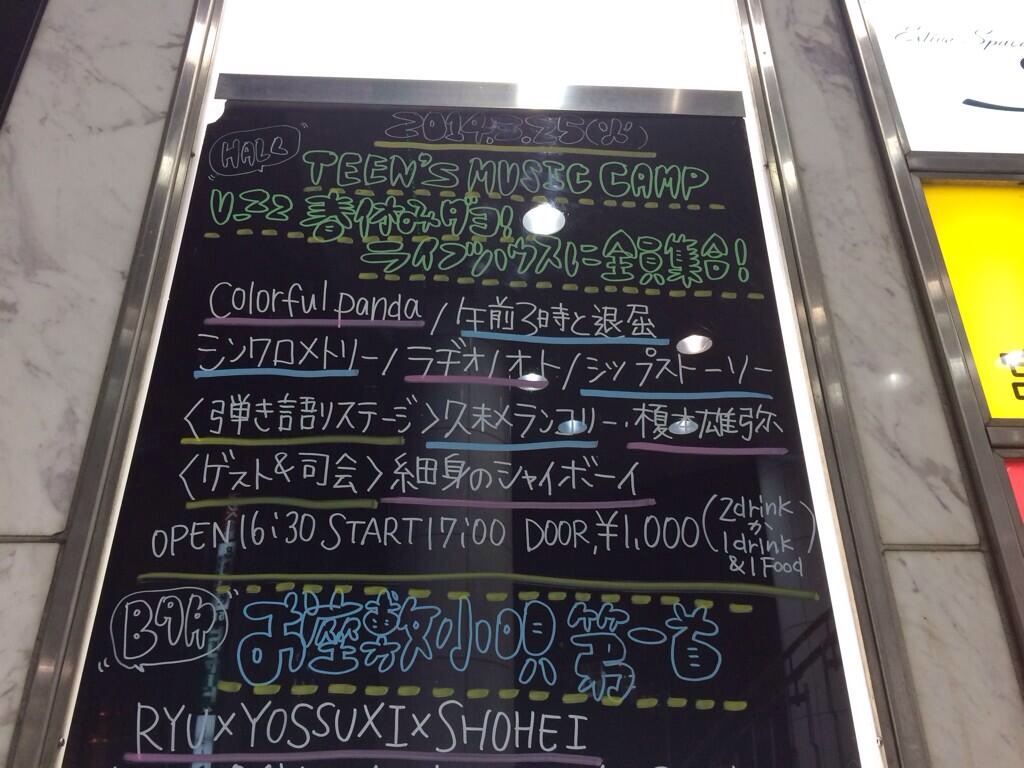 2014.3.25(火)
HALL
TEEN'S MUSIC CAMP
U-22 春休みダヨ!
ライブハウスに全員集合!
Colorful panda / 午前3時と退屈
シンクロメトリー / ラヂオノオト / シップスドーソー
〈弾き語りステージ〉久末メランコリー・榎本雄弥
〈ゲスト&司会〉細身のシャイボーイ
OPEN 16:30 START 17:00 DOOR,¥1,000(2drink か 1drink &1Food)
BAR
お座敷小唄 第一首
RYU×YOSSUXI×SHOHEI